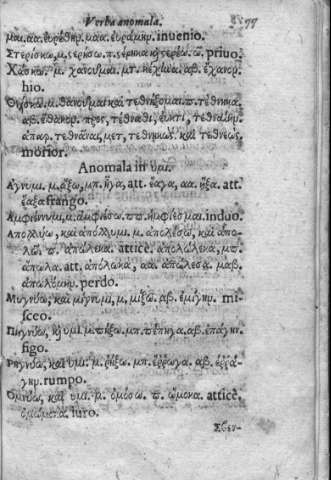 Verba anomala. 99
μαι. αα. εὑρέθην. μαα. εὑράμην. inuenio.
Στερίσκω, μ, στερήσω. π, στέρηκα καὶ στερέω. ῶ. priuo.
Χάσκω. μ. χανοῦμαι. μπ. κέχηνα. αβ. ἔχανον.
hio.
Θνήσκω. μ. θανοῦμαι καὶ τεθνήξομαι. π. τέθνηκα.
αβ. ἔθανον. προστ, τέθναθι, εὐκτ, τεθναίην.
ἀπαρ. τεθνάναι, μετ, τεθνηκὼς καὶ τεθνεώς,
morior.
Anomala in ὑμι.
Ἄγνυμι. μ. ἄξω, μπ. ἦγα, att. ἔαγα, αα. ἦξα. att.
ἔαξα frango.
Ἀμφιέννυμι. μ. ἀμφιέσω. ππ. ἠμφίεσμαι. induo.
Ἀπολλύω, καὶ ἀπόλλυμι. μ. ἀπολέσω, καὶ ἀπο-
λῶ. π. ἀπώλεκα. atticè. ἀπολώλεκα, μπ.
ἀπωλα. att. ἀπόλωλα, αα. ἀπώλεσα. μαβ.
ἀπωλόμην. perdo.
Μιγνύω, καὶ μίγνυμι, μ, μίξω. αβ. ἐμίγην. mi-
sceo.
Πηγνύω, καὶ υμι. μ. πήξω. μπ. πέπηγα. αβ. ἐπάγην.
figo.
Ῥηγνύω, καὶ υμι. μ. ῥήξω. μπ. ἔρρωγα. αβ. ἐρρά-
γην. rumpo.
Ὀμνύω, καὶ υμι. μ. ὀμόσω. π. ὤμοκα. atticè.
ὀμώμοκα. iuro.
Σβεν-